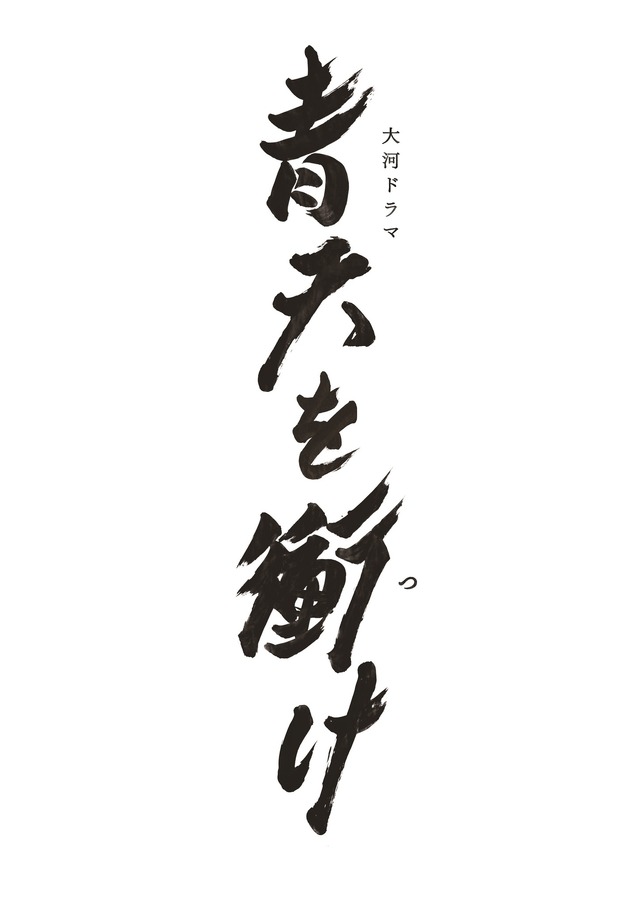 大河ドラマ
青天を衝け
つ